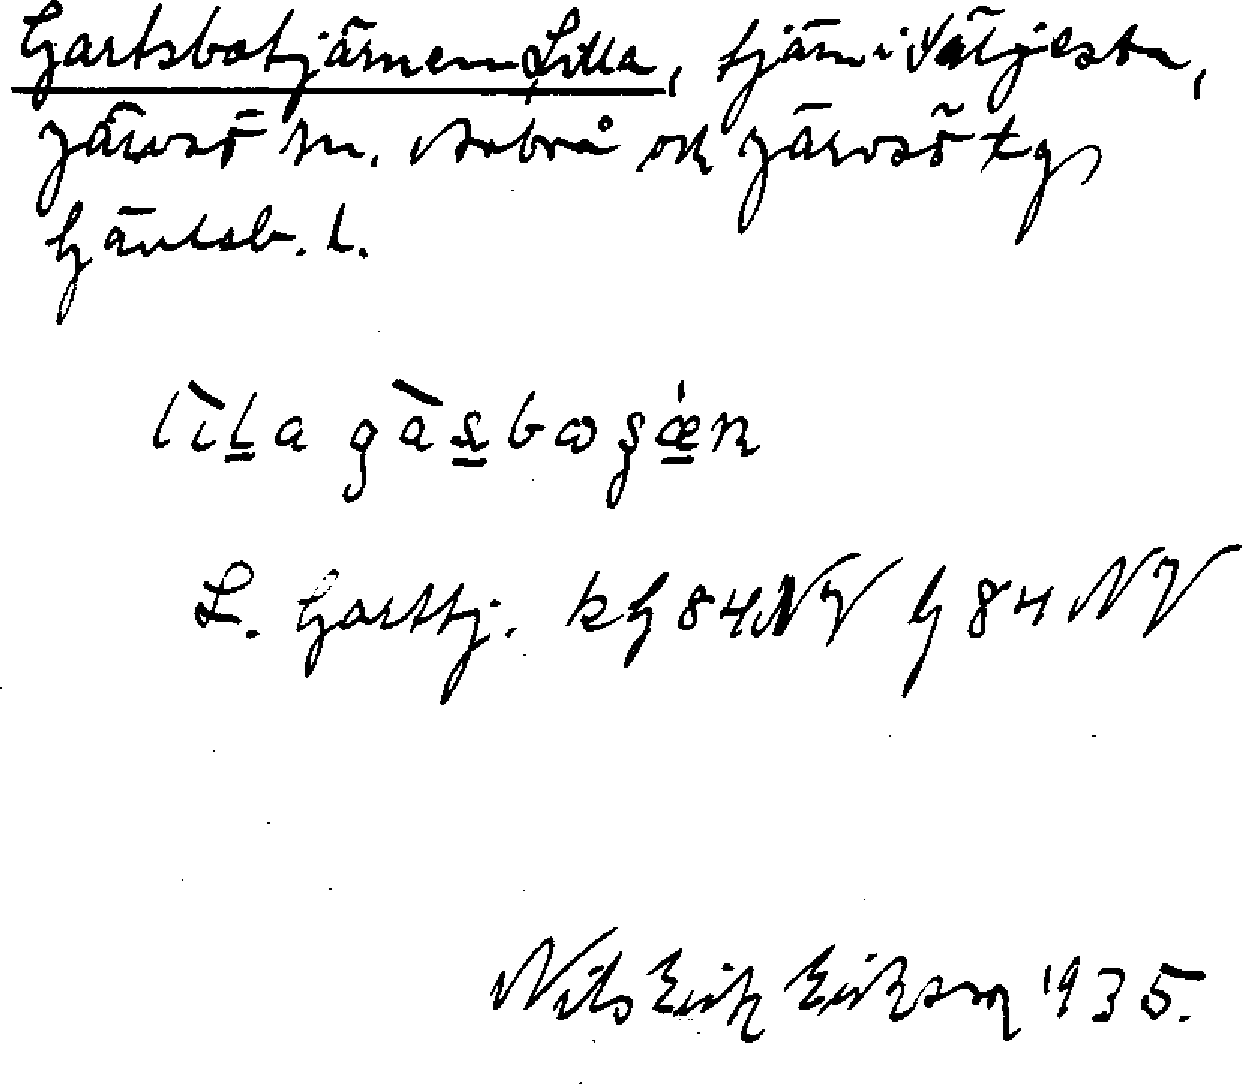 Gartsbotjärnen, Lilla, tjärn i Väljesta,
Järvsö sn. Arbrå ock Järvsö tg,
Gävleb. l.
lìla gàsbosǽn
L. Garttj. kG 84 NV G 84 NV
Nils Erik Eriksson 1935.